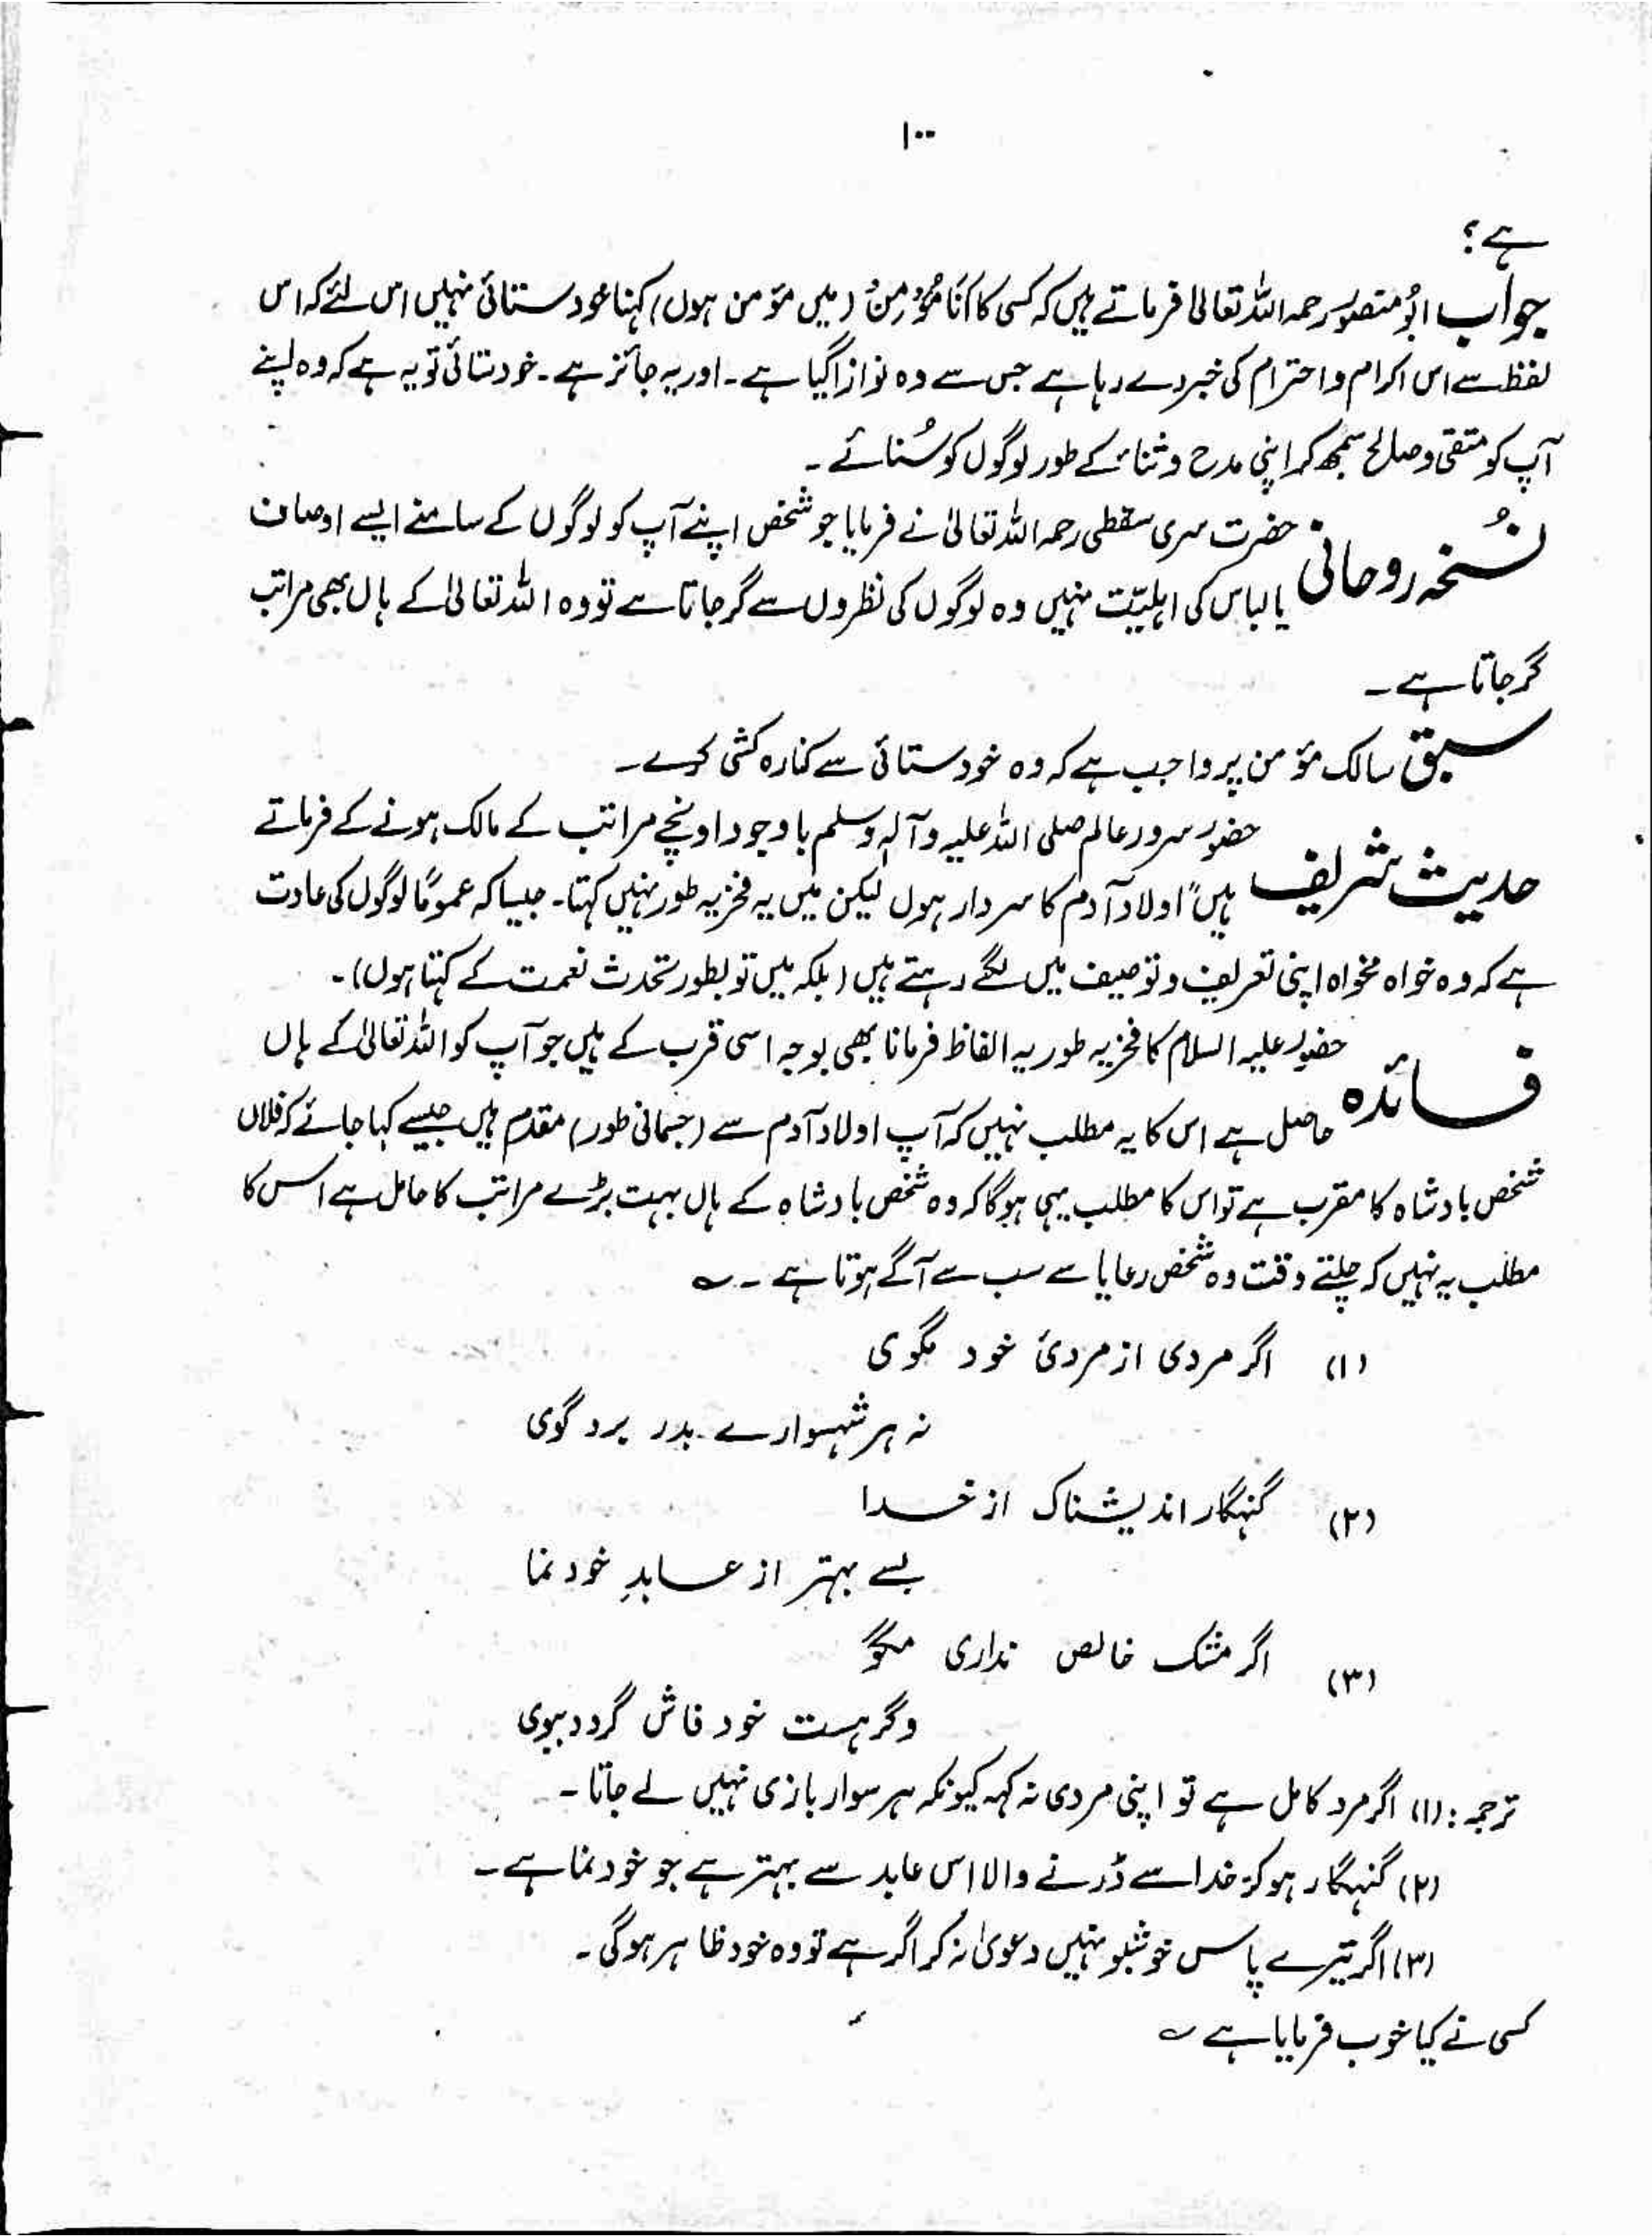 ۱۰۰
ہے؟
جواب ابُو منصور رحمہ اللہ تعالیٰ فرماتے ہیں کہ کسی کا اَنَا مُؤْمِنٌ (میں مؤمن ہوں) کہنا خود ستائی نہیں اس لئے کہ اس
لفظ سے اس اکرام و احترام کی خبر دے رہا ہے جس سے وہ نوازا گیا ہے۔ اور یہ جائز ہے۔ خودستائی تو یہ ہے کہ وہ اپنے
آپ کو متقی و صالح سمجھ کر اپنی مدح و ثناء کے طور لوگوں کو سُنائے۔
نُسخہ روحانی حضرت سری سقطی رحمہ اللہ تعالیٰ نے فرمایا جو شخص اپنے آپ کو لوگوں کے سامنے ایسے اوصاف
یا لباس کی اہلیّت نہیں وہ لوگوں کی نظروں سے گر جاتا سے تو وہ اللہ تعالیٰ کے ہاں بھی مراتب
گر جاتا ہے۔
سبق سالک مؤمن پر واجب ہے کہ وہ خود ستائی سے کنارہ کشی کرے۔
حدیث شریف حضور سرور عالم صلی اللہ علیہ وآلہٖ وسلم باوجود اونچے مراتب کے مالک ہونے کے فرماتے
ہیں" اولاد آدم کا سردار ہوں لیکن میں یہ فخریہ طور نہیں کہتا۔ جیسا کہ عمومًا لوگوں کی عادت
ہے کہ وہ خواہ مخواہ اپنی تعریف و توصیف میں لگے رہتے ہیں (بلکہ میں تو بطور تحدث نعمت کے کہتا ہوں)۔
فائدہ حضور علیہ السلام کا فخریہ طور یہ الفاظ فرمانا بھی بوجہ اسی قرب کے ہیں جو آپ کو اللہ تعالیٰ کے ہاں
حاصل ہے اس کا یہ مطلب نہیں کہ آپ اولاد آدم سے (جسمانی طور) مقدم ہیں جیسے کہا جائے کہ فلاں
شخص بادشاہ کا مقرب ہے تو اس کا مطلب یہی ہوگا کہ وہ شخص بادشاہ کے ہاں بہت بڑے مراتب کا حامل ہے اس کا
مطلب یہ نہیں کہ چلتے وقت وہ شخص رعایا سے سب سے آگے ہوتا ہے۔ ؎
(۱) اگر مردی از مردئ خود مگوی
نہ ہر شہسوارے بدر برد گوی
(۲) گنہگار اندیشناک از خدا
بسے بہتر از عابدِ خود نما
(۳) اگر مشک خالص نداری مگو
وگر ہست خود فاش گردد ببوی
ترجمہ: (۱) اگر مرد کامل ہے تو اپنی مردی نہ کہہ کیونکہ ہر سوار بازی نہیں لے جاتا۔
(۲) گنہگار ہو کر خدا سے ڈرنے والا اس عابد سے بہتر ہے جو خود نما ہے۔
(۳) اگر تیرے پاس خوشبو نہیں دعویٰ نہ کر اگر ہے تو وہ خود ظاہر ہوگی۔
کسی نے کیا خوب فرمایا ہے ؎